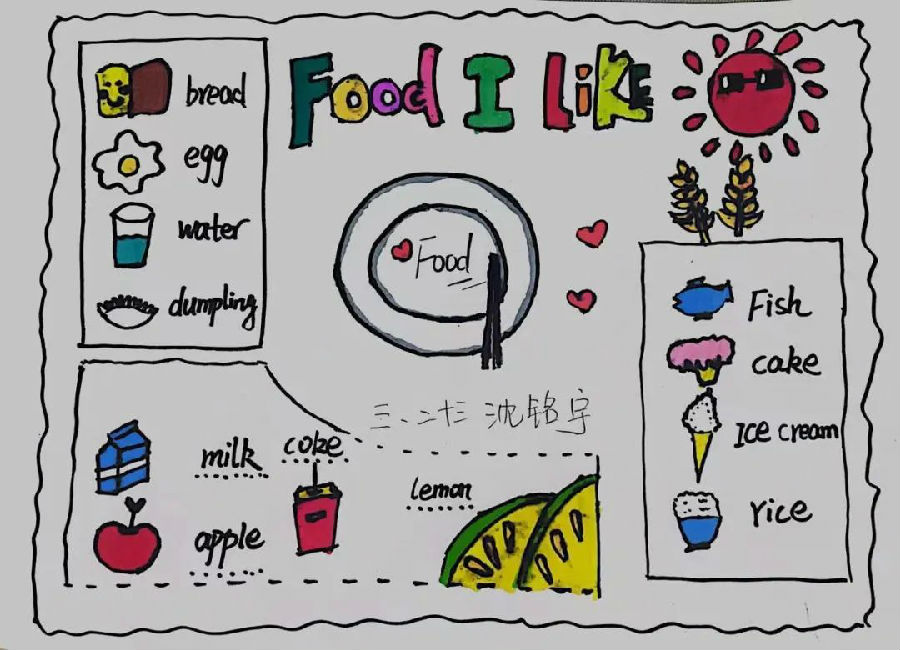 Food I like
bread
egg
water
dumpling
Food
Fish
cake
Ice cream
rice
三、二十三 沈铭宇
milk
coke
lemon
apple